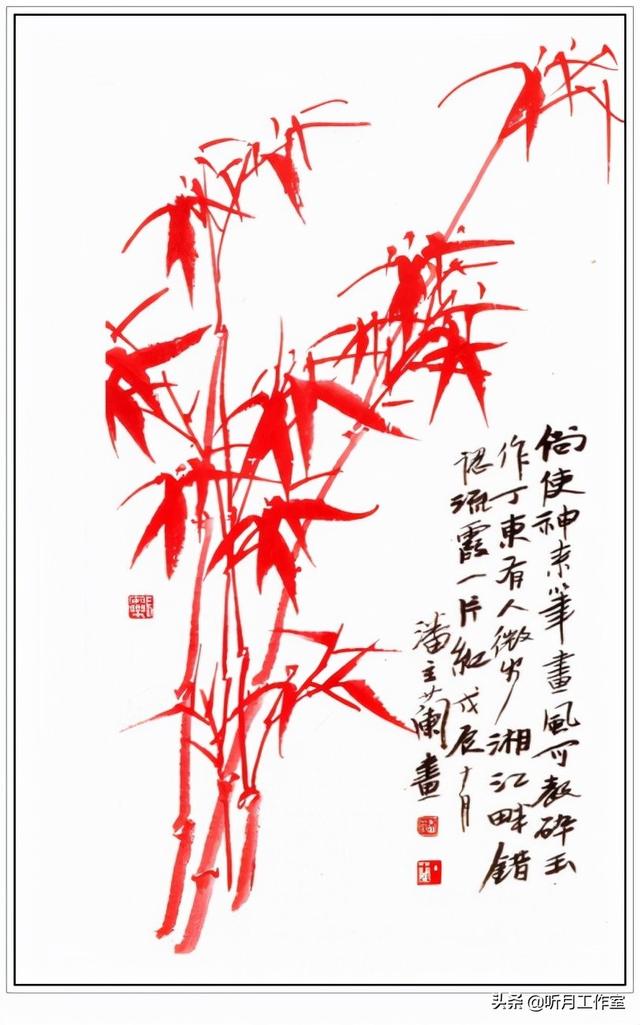 倘使神来筆畫風可教碎玉
作丁東有人微步湘江畔錯
認流霞一片紅戊辰十月
潘主蘭畫
头条 @听月工作室